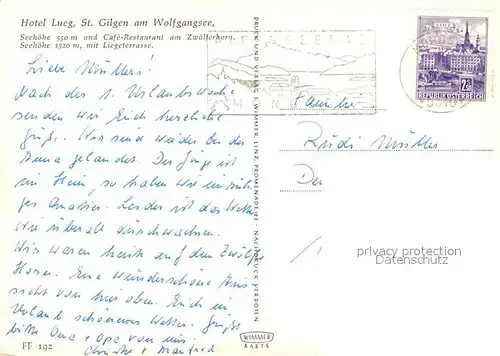 Hotel Lueg, St. Gilgen am Wolfgangsee,
Seehöhe 550 m und Café-Restaurant am Zwölferhorn,
Seehöhe 1520 m, mit Liegeterrasse.
Liebe Müllers!
Nach der 1. Urlaubswoche
senden wir Euch herzliche
Grüße. Wir sind wieder bei der
Oma gelandet. Der Junge ist
im Heim, so haben wir ein
Quartier. Leider ist das Wetter
wie überall durchwachsen.
Wir waren heute auf dem Zwölfer
Horn. Eine wunderschöne Aus
sicht von hier oben. Euch im
Urlaub schöneres Wetter. Grüßt
bitte Oma + Opa von uns
Christa + Manfred
FF 192
DRUCK UND VERLAG K. WIMMER, LINZ, PROMENADE 23 · NACHDRUCK VERBOTEN
WIMMER
KARTE
REPUBLIK ÖSTERREICH
Familie
Rudi Müller
privacy protection
Datenschutz